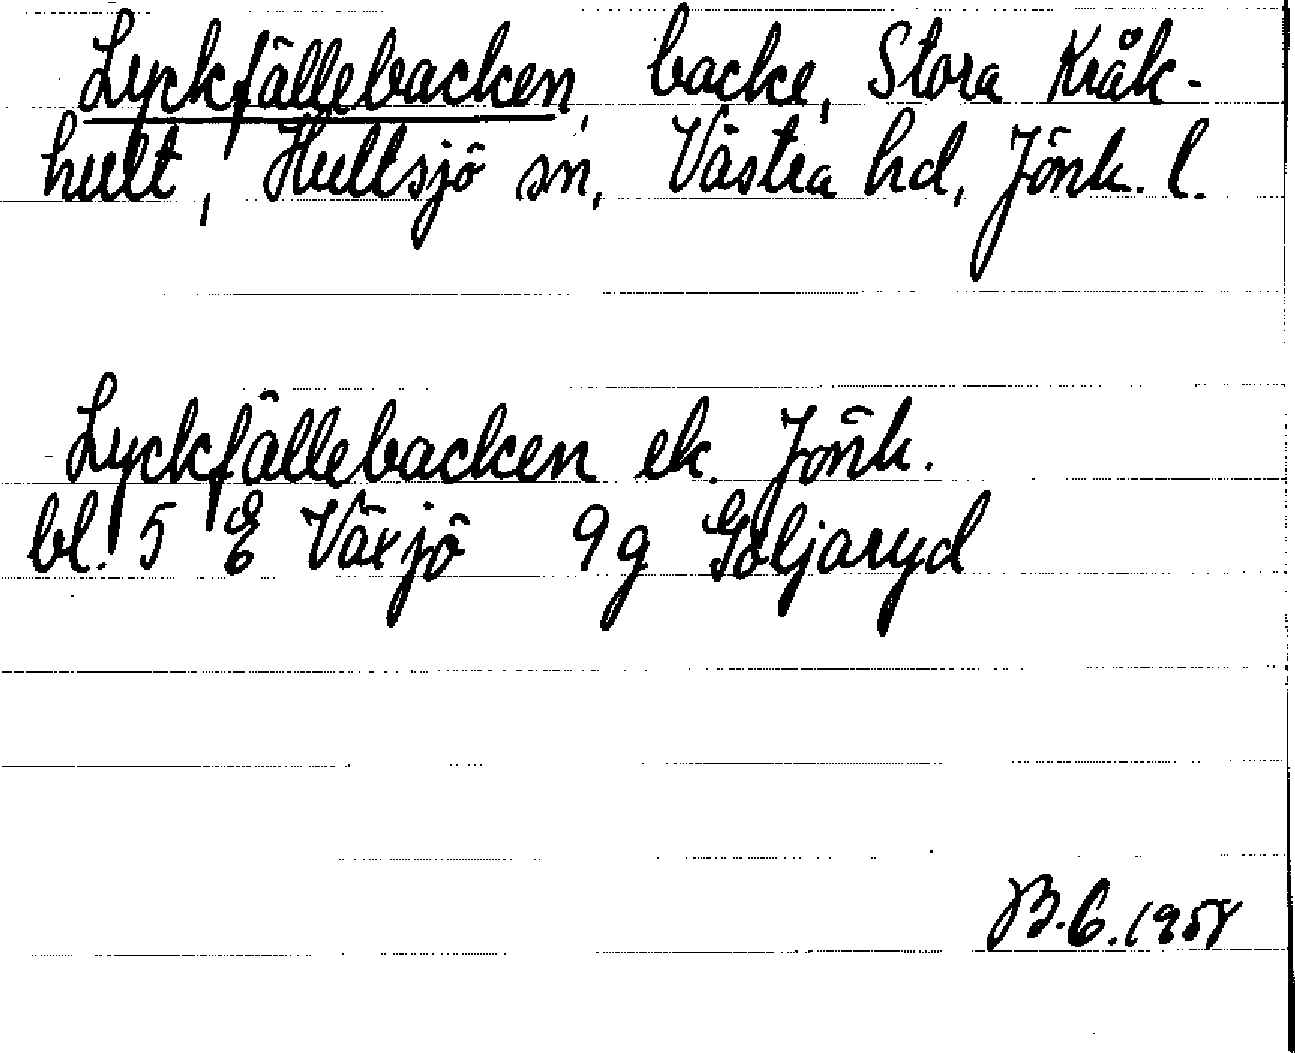 Lyckfällebacken, backe, Stora Kråk-
hult, Hultsjö sn, Västra hd, Jönk. l.
Lyckfällebacken ek. Jönk.
bl. 5 E Växjö 9g Göljaryd
B.C. 1958